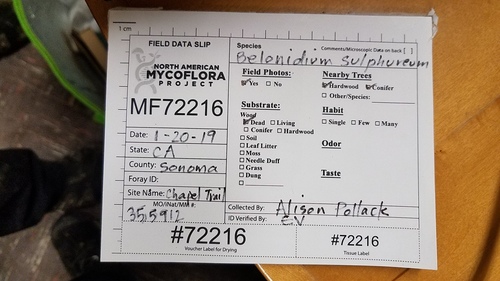 1 cm
FIELD DATA SLIP
NORTH AMERICAN
MYCOFLORA
PROJECT
MF72216
Date: 1-20-19
State: CA
County: Sonoma
Foray ID:
Site Name: Chapel Trail
MO/iNat/MM #:
355912
Species
Comments/Microscopic Data on back [ ]
Belonidium sulphureum
Field Photos:
Yes No
Substrate:
Wood
Dead Living
Conifer Hardwood
Soil
Leaf Litter
Moss
Needle Duff
Grass
Dung
Nearby Trees
Hardwood Conifer
Other/Species:
Habit
Single Few Many
Odor
Taste
Collected By: Alison Pollack
ID Verified By: EV
#72216
Voucher Label for Drying
#72216
Tissue Label